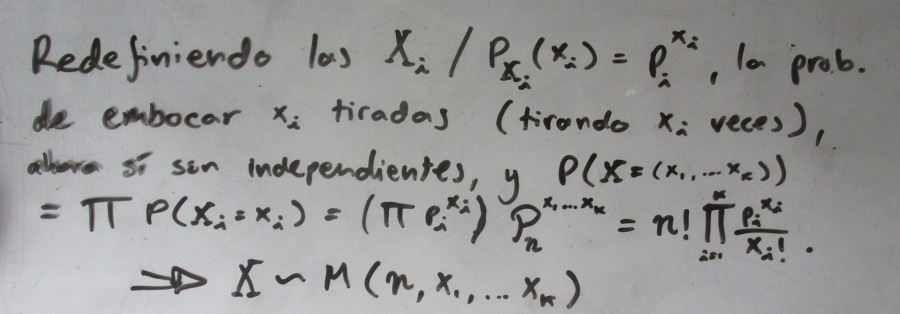 Redefiniendo las Xᵢ / P_Xᵢ(xᵢ) = pᵢ^xᵢ, la prob.
de embocar xᵢ tiradas (tirando xᵢ veces),
ahora sí son independientes, y P(X = (x₁, ... xₖ))
= ∏ P(Xᵢ = xᵢ) = (∏ pᵢ^xᵢ) Pₙ^x₁...xₖ = n! ∏ᵢ₌₁ᵏ pᵢ^xᵢ / xᵢ! .
⇒ X ~ M(n, x₁, ... xₖ)